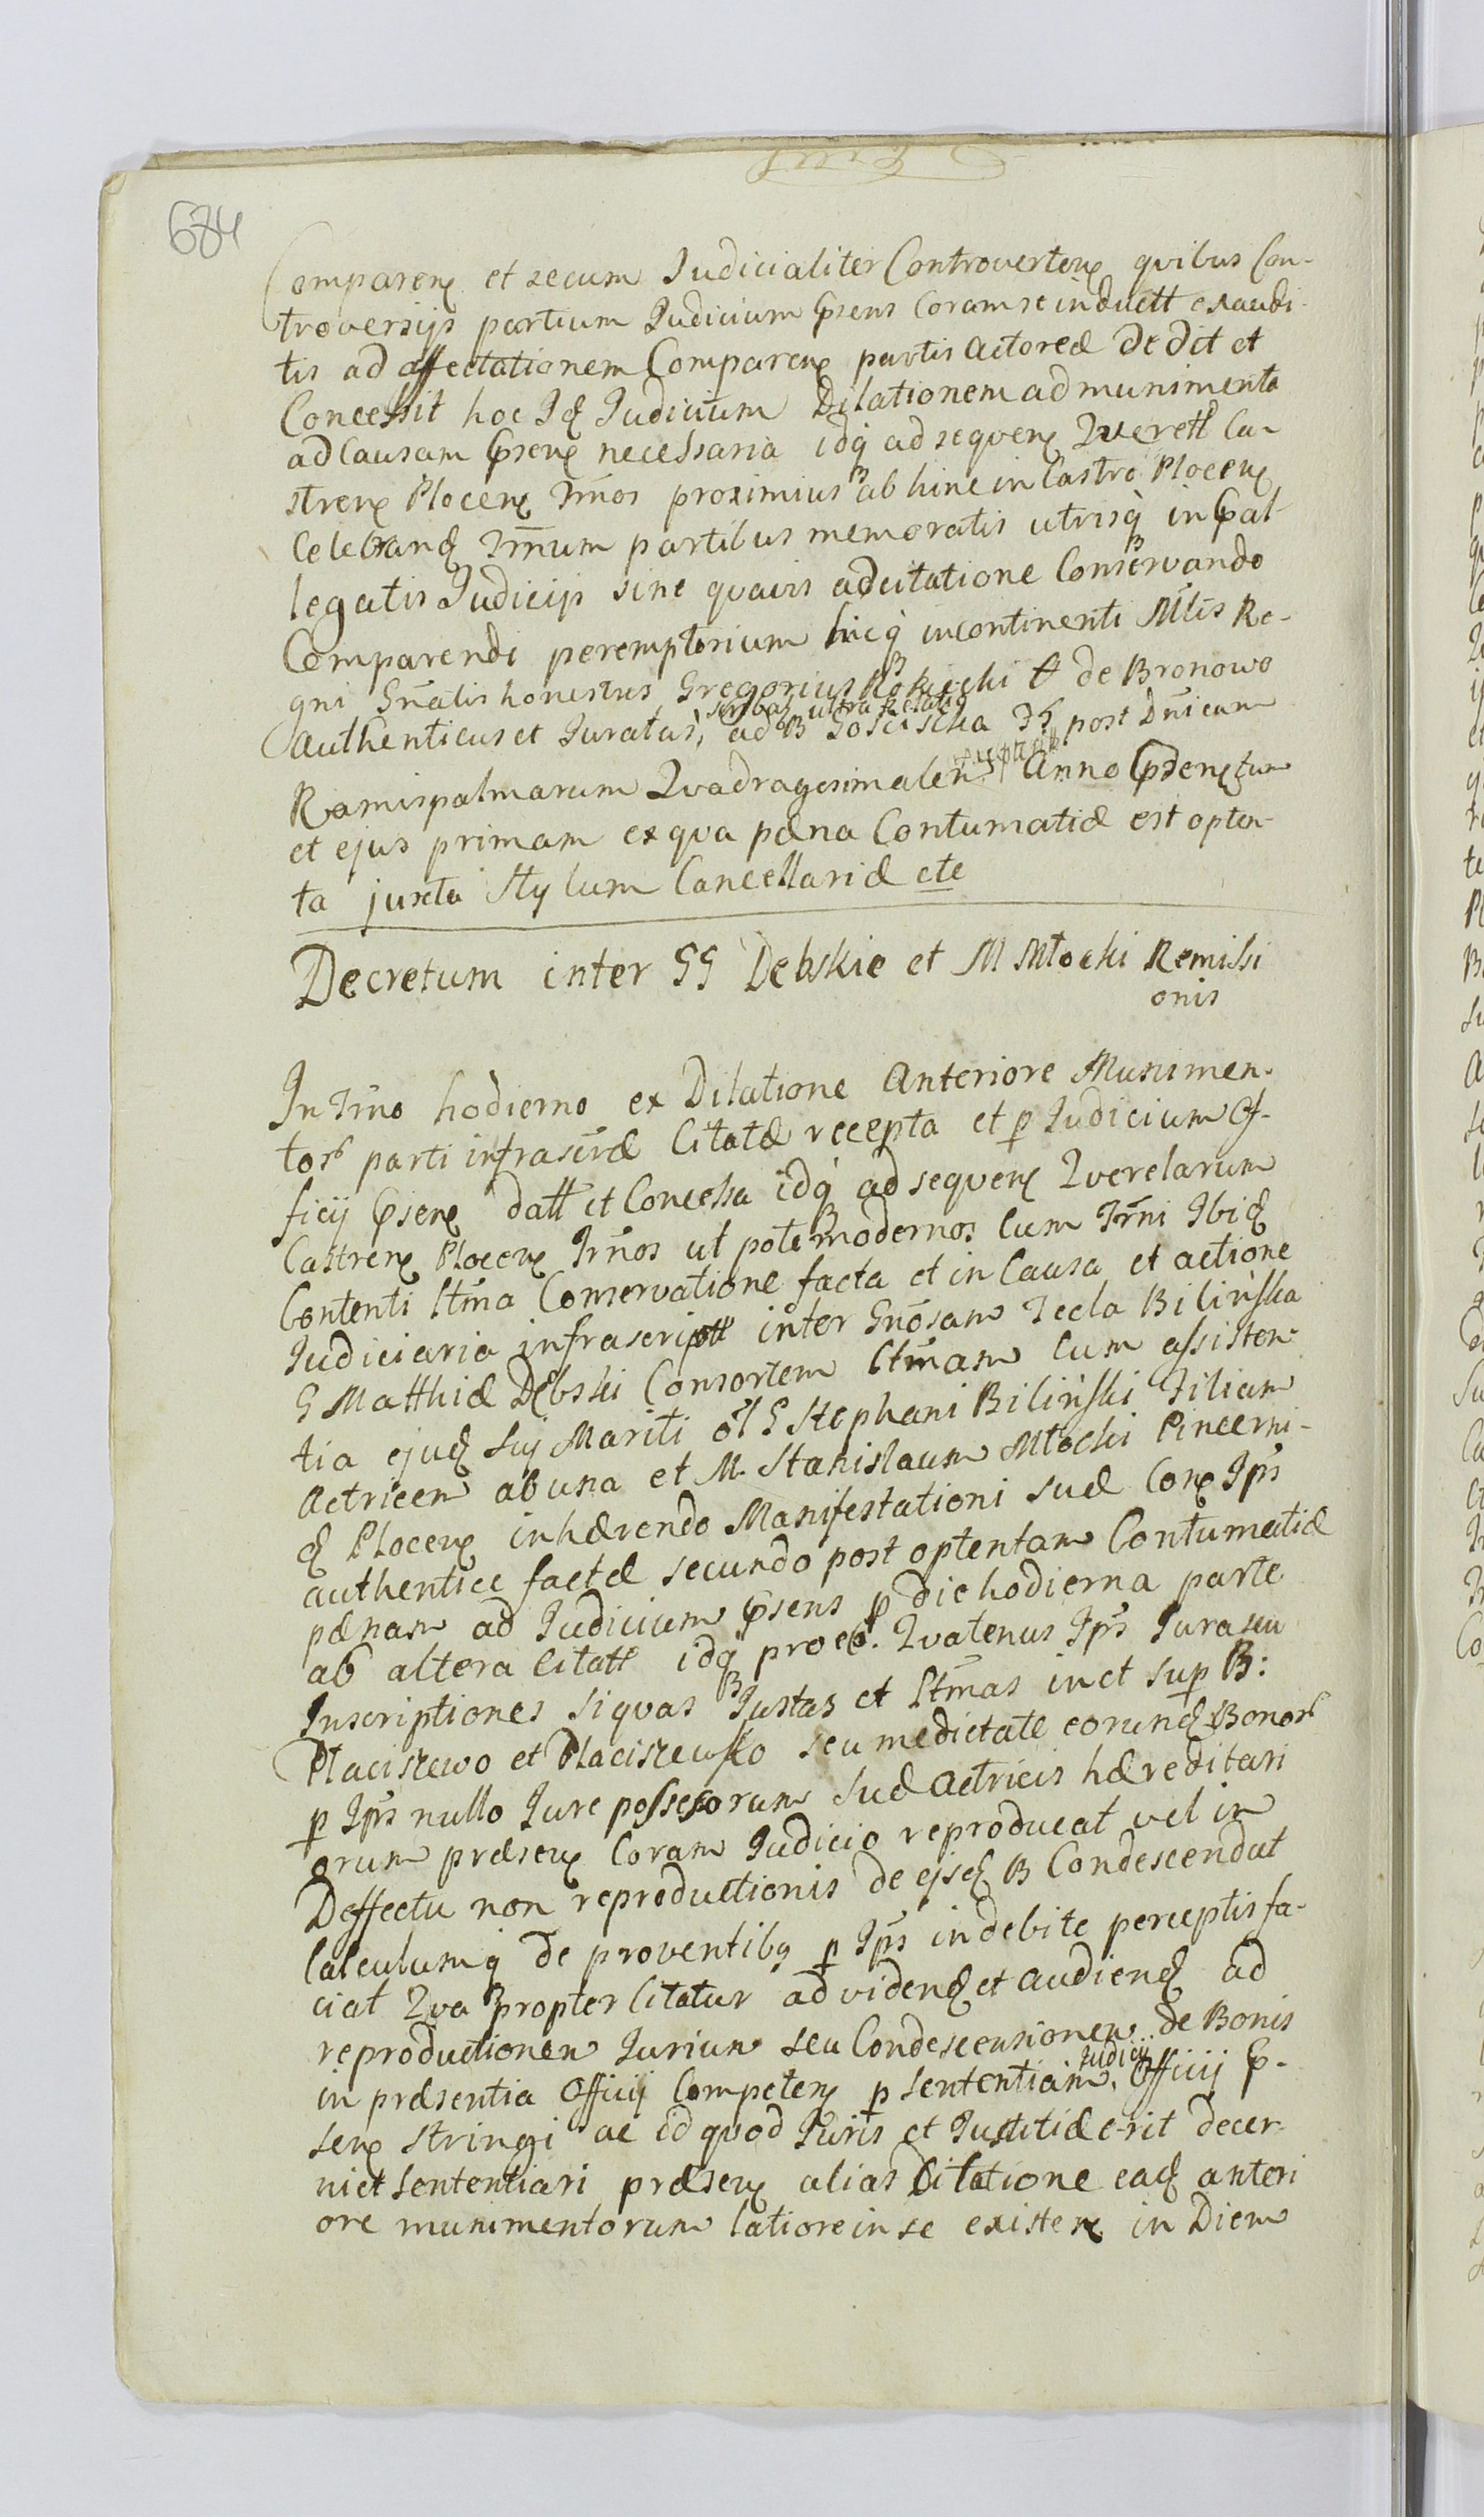 684
Comparen et secum Judicialiter Controverten quibus Con-
troversijs partium Judicium Psens Coram se induett exaudi-
tis ad affectationem Comparen partis actoreæ dedit et
Concessit hoc Id Judicium Dilationem ad munimenta
ad Causam Psen necessaria idq ad sequen Querell Ca-
stren Plocen Trnos proximius abhinc in Castro Plocen
Celebrand Trnum partibus memoratis utrisq in
legatis Judicijs sine quavis adcitatione Conservando
Comparendi peremptorium hicq incontinenti Mltis Re-
gni Gnalis honestus Gregorius Rokicki de Bronowo
scribal ultra Relatio
authenticus et Juratus, ad B Gosciska post Dnicam
Ramispalmarum Quadragesimalem Anno Psen tum
et ejus primam ex qua pæna Contumatiæ est opten-
ta juxta Stylum Cancellariæ etc
Decretum inter GG Debskie et M Młocki Remissi
onis
In Trno hodierno ex Dilatione Anteriore Munimen-
tor parti infrascræ Citatæ recepta et p Judicium Of-
ficij Psen datt et Concessa idq ad sequen Querelarum
Castren Plocen Trnos ut pote modernos cum Trni Ibid
Contenti ltma Conservatione facta et in Causa et actione
Judiciaria infrascriptt inter Gnosam Tecla Bilińska
G Matthiæ Dębski Consortem ltmam cum assisten-
tia ejud Suj Mariti ol G Stephani Biliński Filiam
Actricem ab una et M. Stanislaum Młocki Pincerni-
d Plocen inhærendo Manifestationi suæ Con Ips
authentice factæ secundo post optentam Contumatiæ
pænam ad Judicium Psens p die hodierna parte
ab altera Citatt idq proeo. Quatenus Ips Jura seu
Inscriptiones si quas Justas et ltmas in et sup B:
Płaciszewo et Płaciszewko seu medietate eorund Bonor
p Ips nullo Jure possessorum suæ Actricis hæreditari
orum præsen Coram Judicio reproducat vel in
Deffectu non reproductionis de ejsd B Condescendat
Calculumq de proventibq p Ips indebite perceptis fa-
ciat Qua propter Citatur ad vidend et audiend ad
reproductionem Jurium seu Condescensionem de Bonis
in præsentia Officij Competen p Sententiam Judicij Officij P-
sen stringi ac id quod Juris et Justitiæ erit decer-
ni et Sententiari præsen alias Dilatione ead anteri
ore munimentorum latiore in se existen in Diem